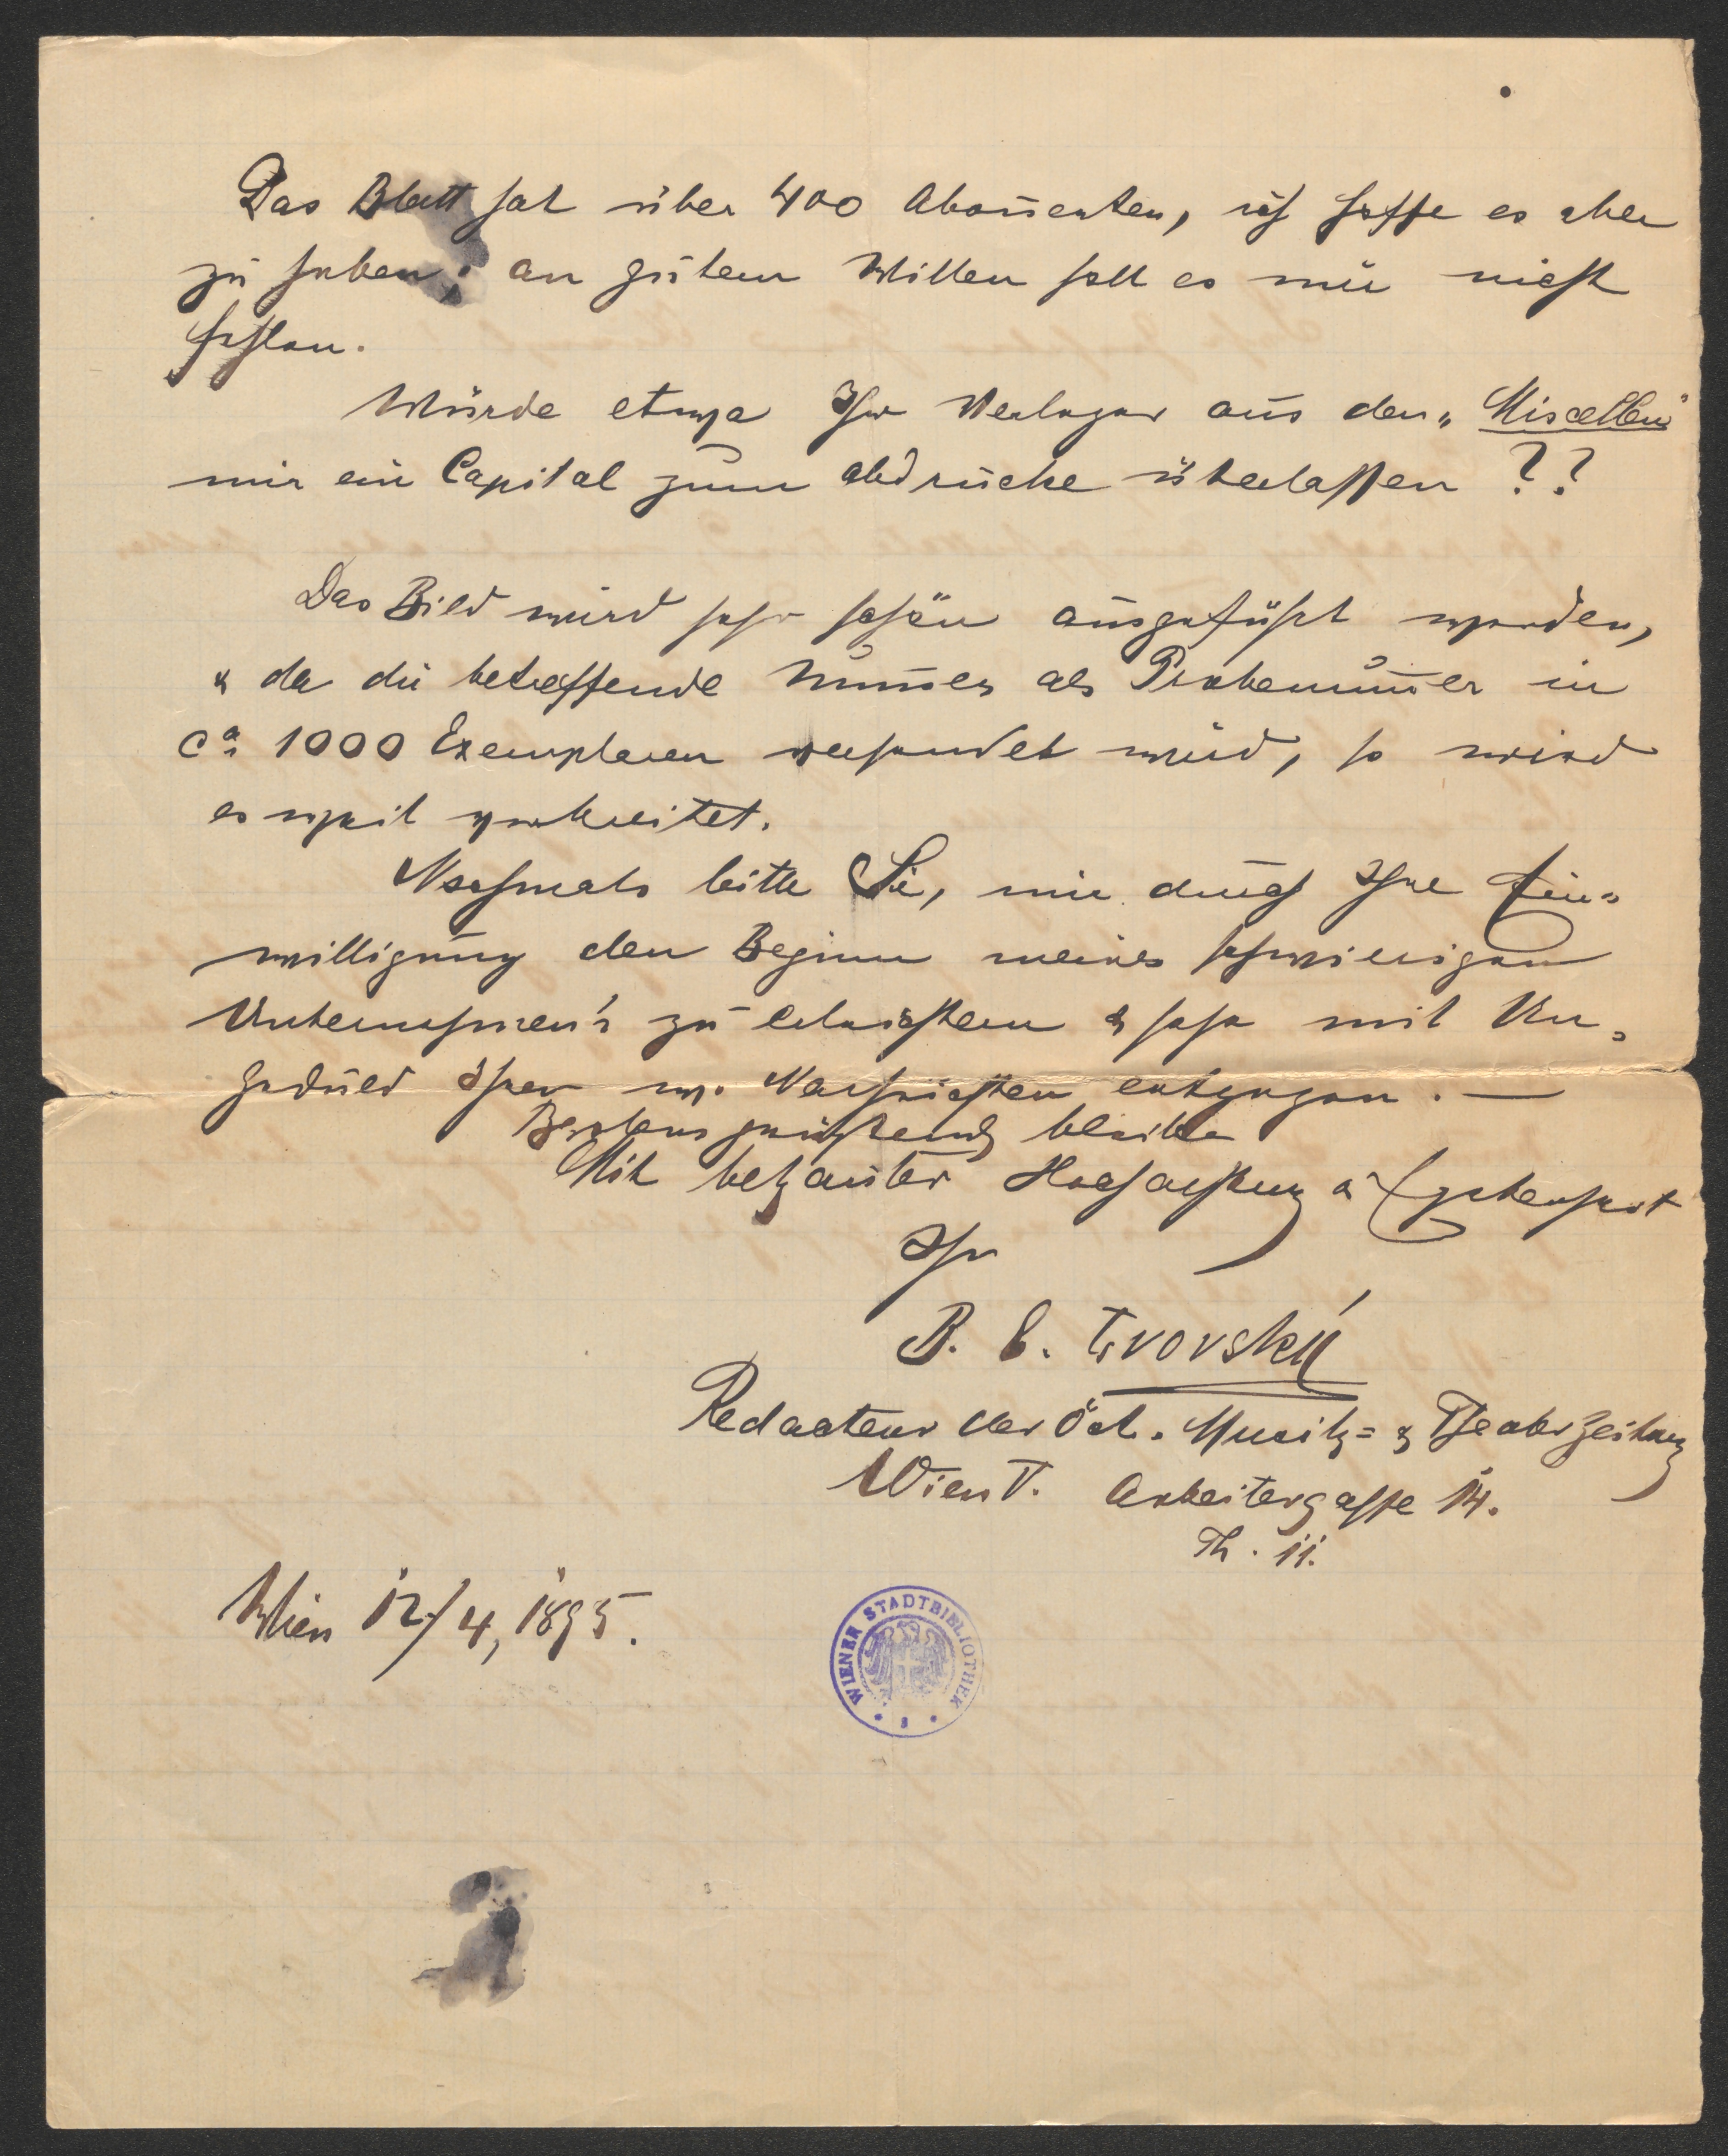 Das Blatt hat über 400 Abon̄enten, ich hoffe es aber
zu heben; an gutem Willen soll es mir nicht
fehlen.
Würde etwa Ihr Verleger aus den „Miscellen"
mir ein Capitel zum Abdrucke überlassen ??
Das Bild wird sehr schön ausgeführt werden,
& da die betreffende Num̄er als Probenum̄er in
ca. 1000 Exemplaren versendet wird, so wird
es weit verbreitet.
Nochmals bitte Sie, mir durch Ihre Ein=
willigung den Beginn meines schwierigen
Unternehmen's zu erleichtern & sehe mit Un=
geduld Ihren w. Nachrichten entgegen. —
Bestens grüssend bleibe
Mit bekannter Hochachtung & Ergebenheit
Ihr
B. E. Lvovský
Redacteur der Öst. Musik= & Theaterzeitung
Wien V. Arbeitergasse 14.
Th. 11.
Wien 12/4, 1895.
WIENER STADTBIBLIOTHEK